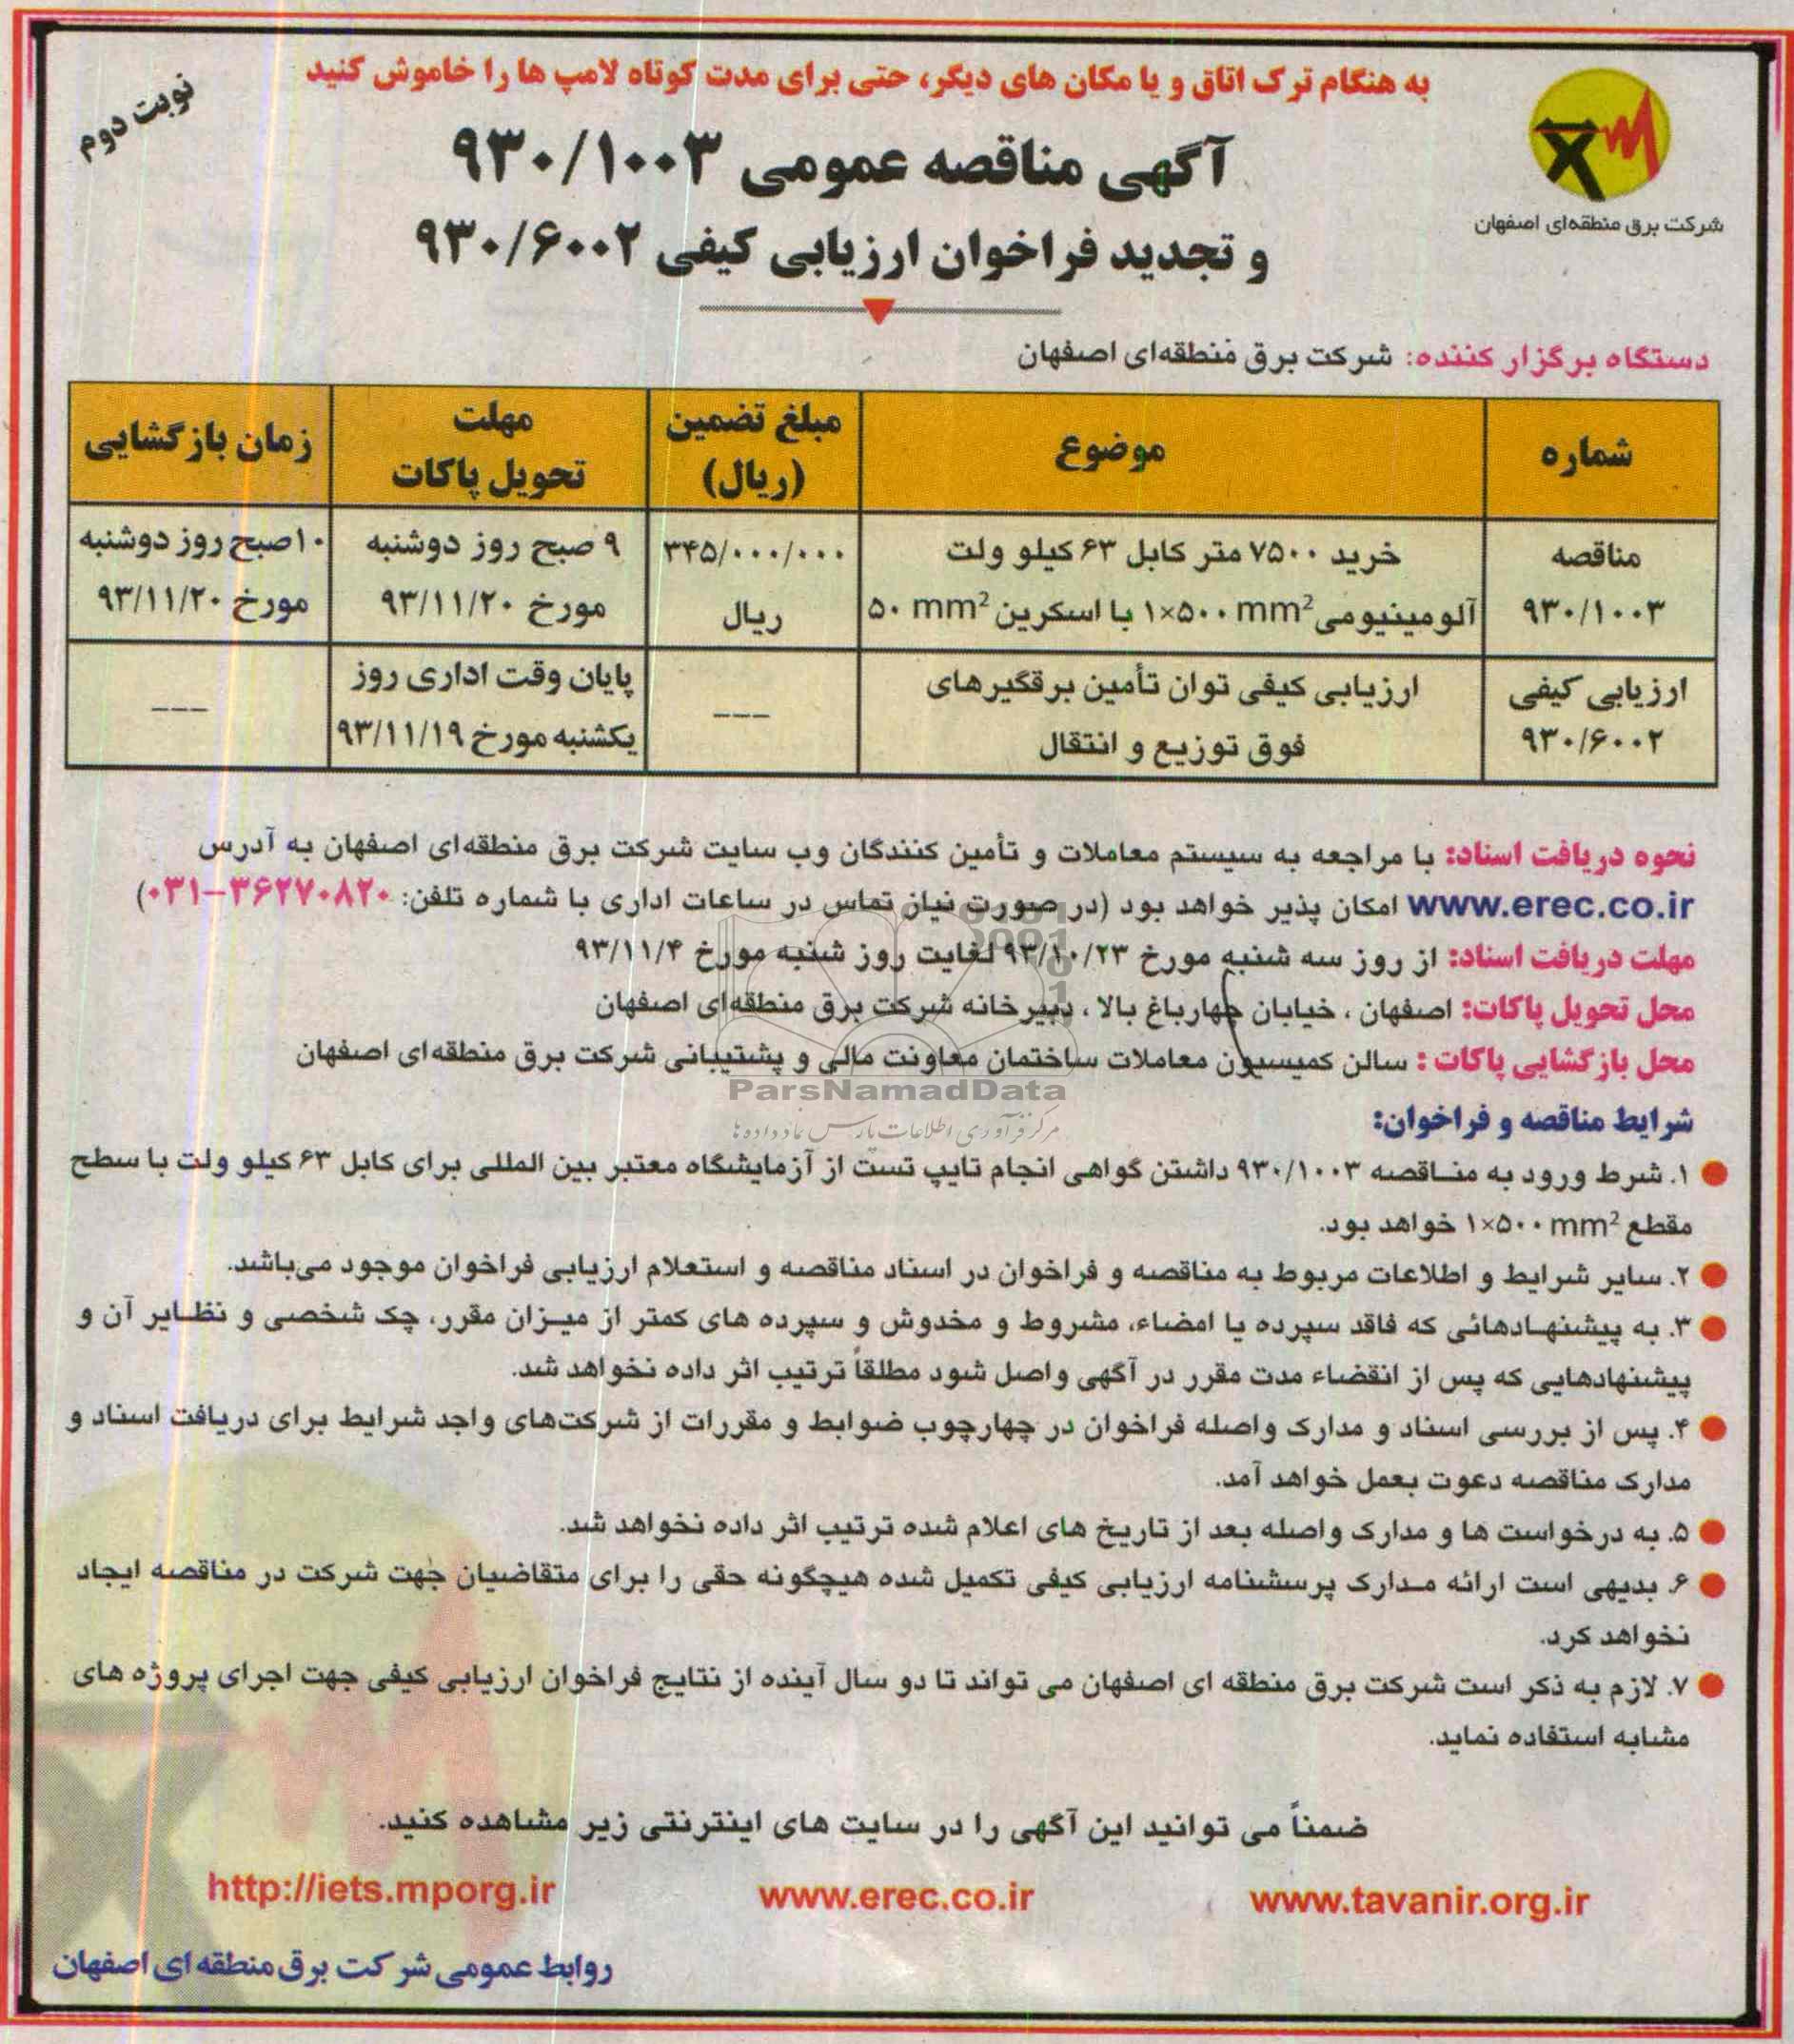 به هنگام ترک اتاق و یا مکان های دیگر، حتی برای مدت کوتاه لامپ ها را خاموش کنید
نوبت دوم
شرکت برق منطقه‌ای اصفهان
آگهی مناقصه عمومی ۹۳۰/۱۰۰۳
و تجدید فراخوان ارزیابی کیفی ۹۳۰/۶۰۰۲
دستگاه برگزار کننده: شرکت برق منطقه‌ای اصفهان
شماره | موضوع | مبلغ تضمین (ریال) | مهلت تحویل پاکات | زمان بازگشایی
مناقصه ۹۳۰/۱۰۰۳ | خرید ۷۵۰۰ متر کابل ۶۳ کیلو ولت آلومینیومی ۱×۵۰۰ mm² با اسکرین ۵۰ mm² | ۳۴۵/۰۰۰/۰۰۰ ریال | ۹ صبح روز دوشنبه مورخ ۹۳/۱۱/۲۰ | ۱۰صبح روز دوشنبه مورخ ۹۳/۱۱/۲۰
ارزیابی کیفی ۹۳۰/۶۰۰۲ | ارزیابی کیفی توان تأمین برقگیرهای فوق توزیع و انتقال | --- | پایان وقت اداری روز یکشنبه مورخ ۹۳/۱۱/۱۹ | ---
نحوه دریافت اسناد: با مراجعه به سیستم معاملات و تأمین کنندگان وب سایت شرکت برق منطقه‌ای اصفهان به آدرس
www.erec.co.ir امکان پذیر خواهد بود (در صورت نیاز تماس در ساعات اداری با شماره تلفن: ۰۳۱-۳۶۲۷۰۸۲۰)
مهلت دریافت اسناد: از روز سه شنبه مورخ ۹۳/۱۰/۲۳ لغایت روز شنبه مورخ ۹۳/۱۱/۴
محل تحویل پاکات: اصفهان ، خیابان چهارباغ بالا ، دبیرخانه شرکت برق منطقه‌ای اصفهان
محل بازگشایی پاکات : سالن کمیسیون معاملات ساختمان معاونت مالی و پشتیبانی شرکت برق منطقه‌ای اصفهان
ParsNamadData
مرکز فرآوری اطلاعات پارس نماد داده ها
شرایط مناقصه و فراخوان:
۱. شرط ورود به مناقصه ۹۳۰/۱۰۰۳ داشتن گواهی انجام تایپ تست از آزمایشگاه معتبر بین المللی برای کابل ۶۳ کیلو ولت با سطح
مقطع ۱×۵۰۰ mm² خواهد بود.
۲. سایر شرایط و اطلاعات مربوط به مناقصه و فراخوان در اسناد مناقصه و استعلام ارزیابی فراخوان موجود می‌باشد.
۳. به پیشنهادهائی که فاقد سپرده یا امضاء، مشروط و مخدوش و سپرده های کمتر از میزان مقرر، چک شخصی و نظایر آن و
پیشنهادهایی که پس از انقضاء مدت مقرر در آگهی واصل شود مطلقاً ترتیب اثر داده نخواهد شد.
۴. پس از بررسی اسناد و مدارک واصله فراخوان در چهارچوب ضوابط و مقررات از شرکت‌های واجد شرایط برای دریافت اسناد و
مدارک مناقصه دعوت بعمل خواهد آمد.
۵. به درخواست ها و مدارک واصله بعد از تاریخ های اعلام شده ترتیب اثر داده نخواهد شد.
۶. بدیهی است ارائه مدارک پرسشنامه ارزیابی کیفی تکمیل شده هیچگونه حقی را برای متقاضیان جهت شرکت در مناقصه ایجاد
نخواهد کرد.
۷. لازم به ذکر است شرکت برق منطقه ای اصفهان می تواند تا دو سال آینده از نتایج فراخوان ارزیابی کیفی جهت اجرای پروژه های
مشابه استفاده نماید.
ضمناً می توانید این آگهی را در سایت های اینترنتی زیر مشاهده کنید.
www.tavanir.org.ir www.erec.co.ir http://iets.mporg.ir
روابط عمومی شرکت برق منطقه ای اصفهان